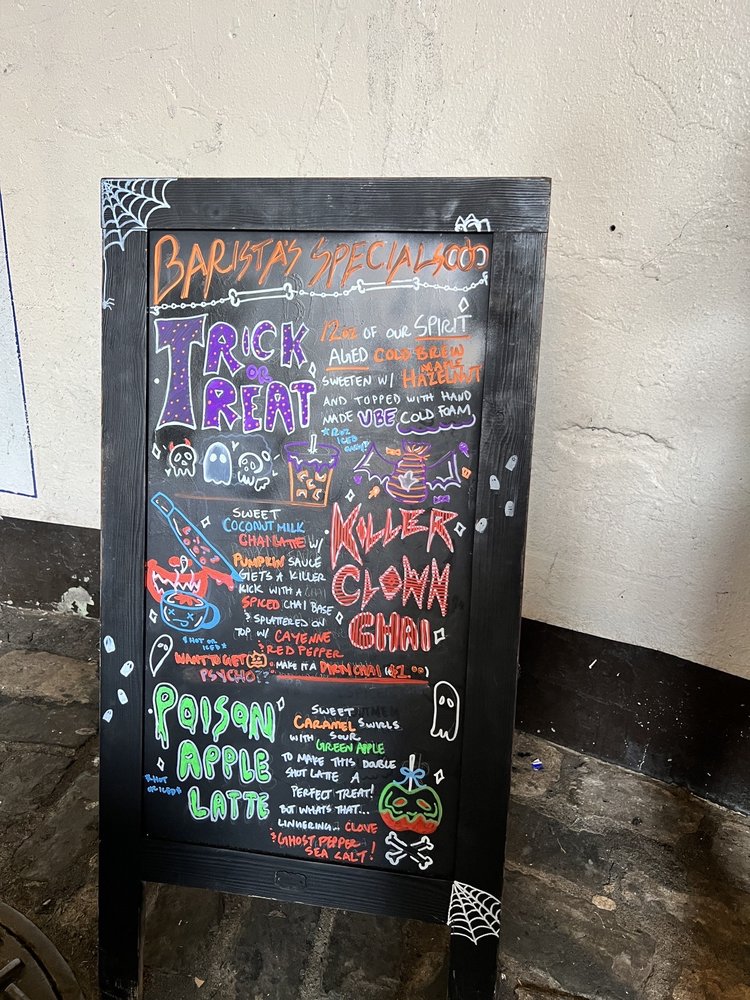 BARISTA'S SPECIALS
TRICK
OR
TREAT
12oz OF OUR SPIRIT
AGED COLD BREW
SWEETEN W/ MAPLE HAZELNUT
AND TOPPED WITH HAND
MADE UBE COLD FOAM
*12oz
ICED
ONLY*
SWEET
COCONUT MILK
CHAI LATTE W/
PUMPKIN SAUCE
GETS A KILLER
KICK WITH A CHAI
SPICED CHAI BASE
& SPLATTERED ON
TOP W/ CAYENNE
& RED PEPPER
KILLER
CLOWN
CHAI
*HOT OR
ICED*
WANT TO GET
PSYCHO?? MAKE IT A DIRTY CHAI ($1.00)
POISON
APPLE
LATTE
*HOT
OR ICED*
SWEET
CARAMEL SWIRLS
WITH SOUR
GREEN APPLE
TO MAKE THIS DOUBLE
SHOT LATTE A
PERFECT TREAT!
BUT WHATS THAT...
LINHERING.. CLOVE
& GHOST PEPPER
SEA SALT!